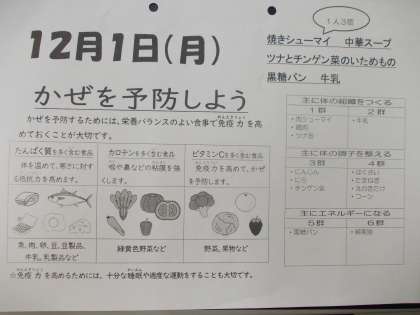 12月1日(月)
1人3個
焼きシューマイ 中華スープ
ツナとチンゲン菜のいためもの
黒糖パン 牛乳
かぜを予防しよう
かぜを予防するためには、栄養バランスのよい食事で免疫力を高
めておくことが大切です。
たんぱく質を多く含む食品
体を温めて、寒さに対す
る抵抗力を高めます。
魚、肉、卵、豆、豆製品、
牛乳、乳製品など
カロテンを多く含む食品
喉や鼻などの粘膜を強
くします。
緑黄色野菜など
ビタミンCを多く含む食品
免疫力を高めて、かぜ
を予防します。
野菜、果物など
☆免疫力を高めるためには、十分な睡眠や適度な運動をすることも大切です。
主に体の組織をつくる
1群 2群
・肉シューマイ ・牛乳
・鶏肉
・ツナ缶
主に体の調子を整える
3群 4群
・にんじん ・はくさい
・にら ・たまねぎ
・チンゲン菜 ・えのきたけ
・コーン
主にエネルギーになる
5群 6群
・黒糖パン